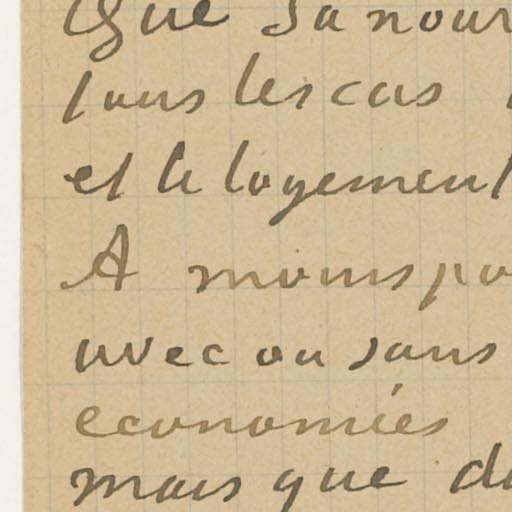 Que sa nour
tous les cas
et le logement
A moins po
avec ou sans
economies
mais que da